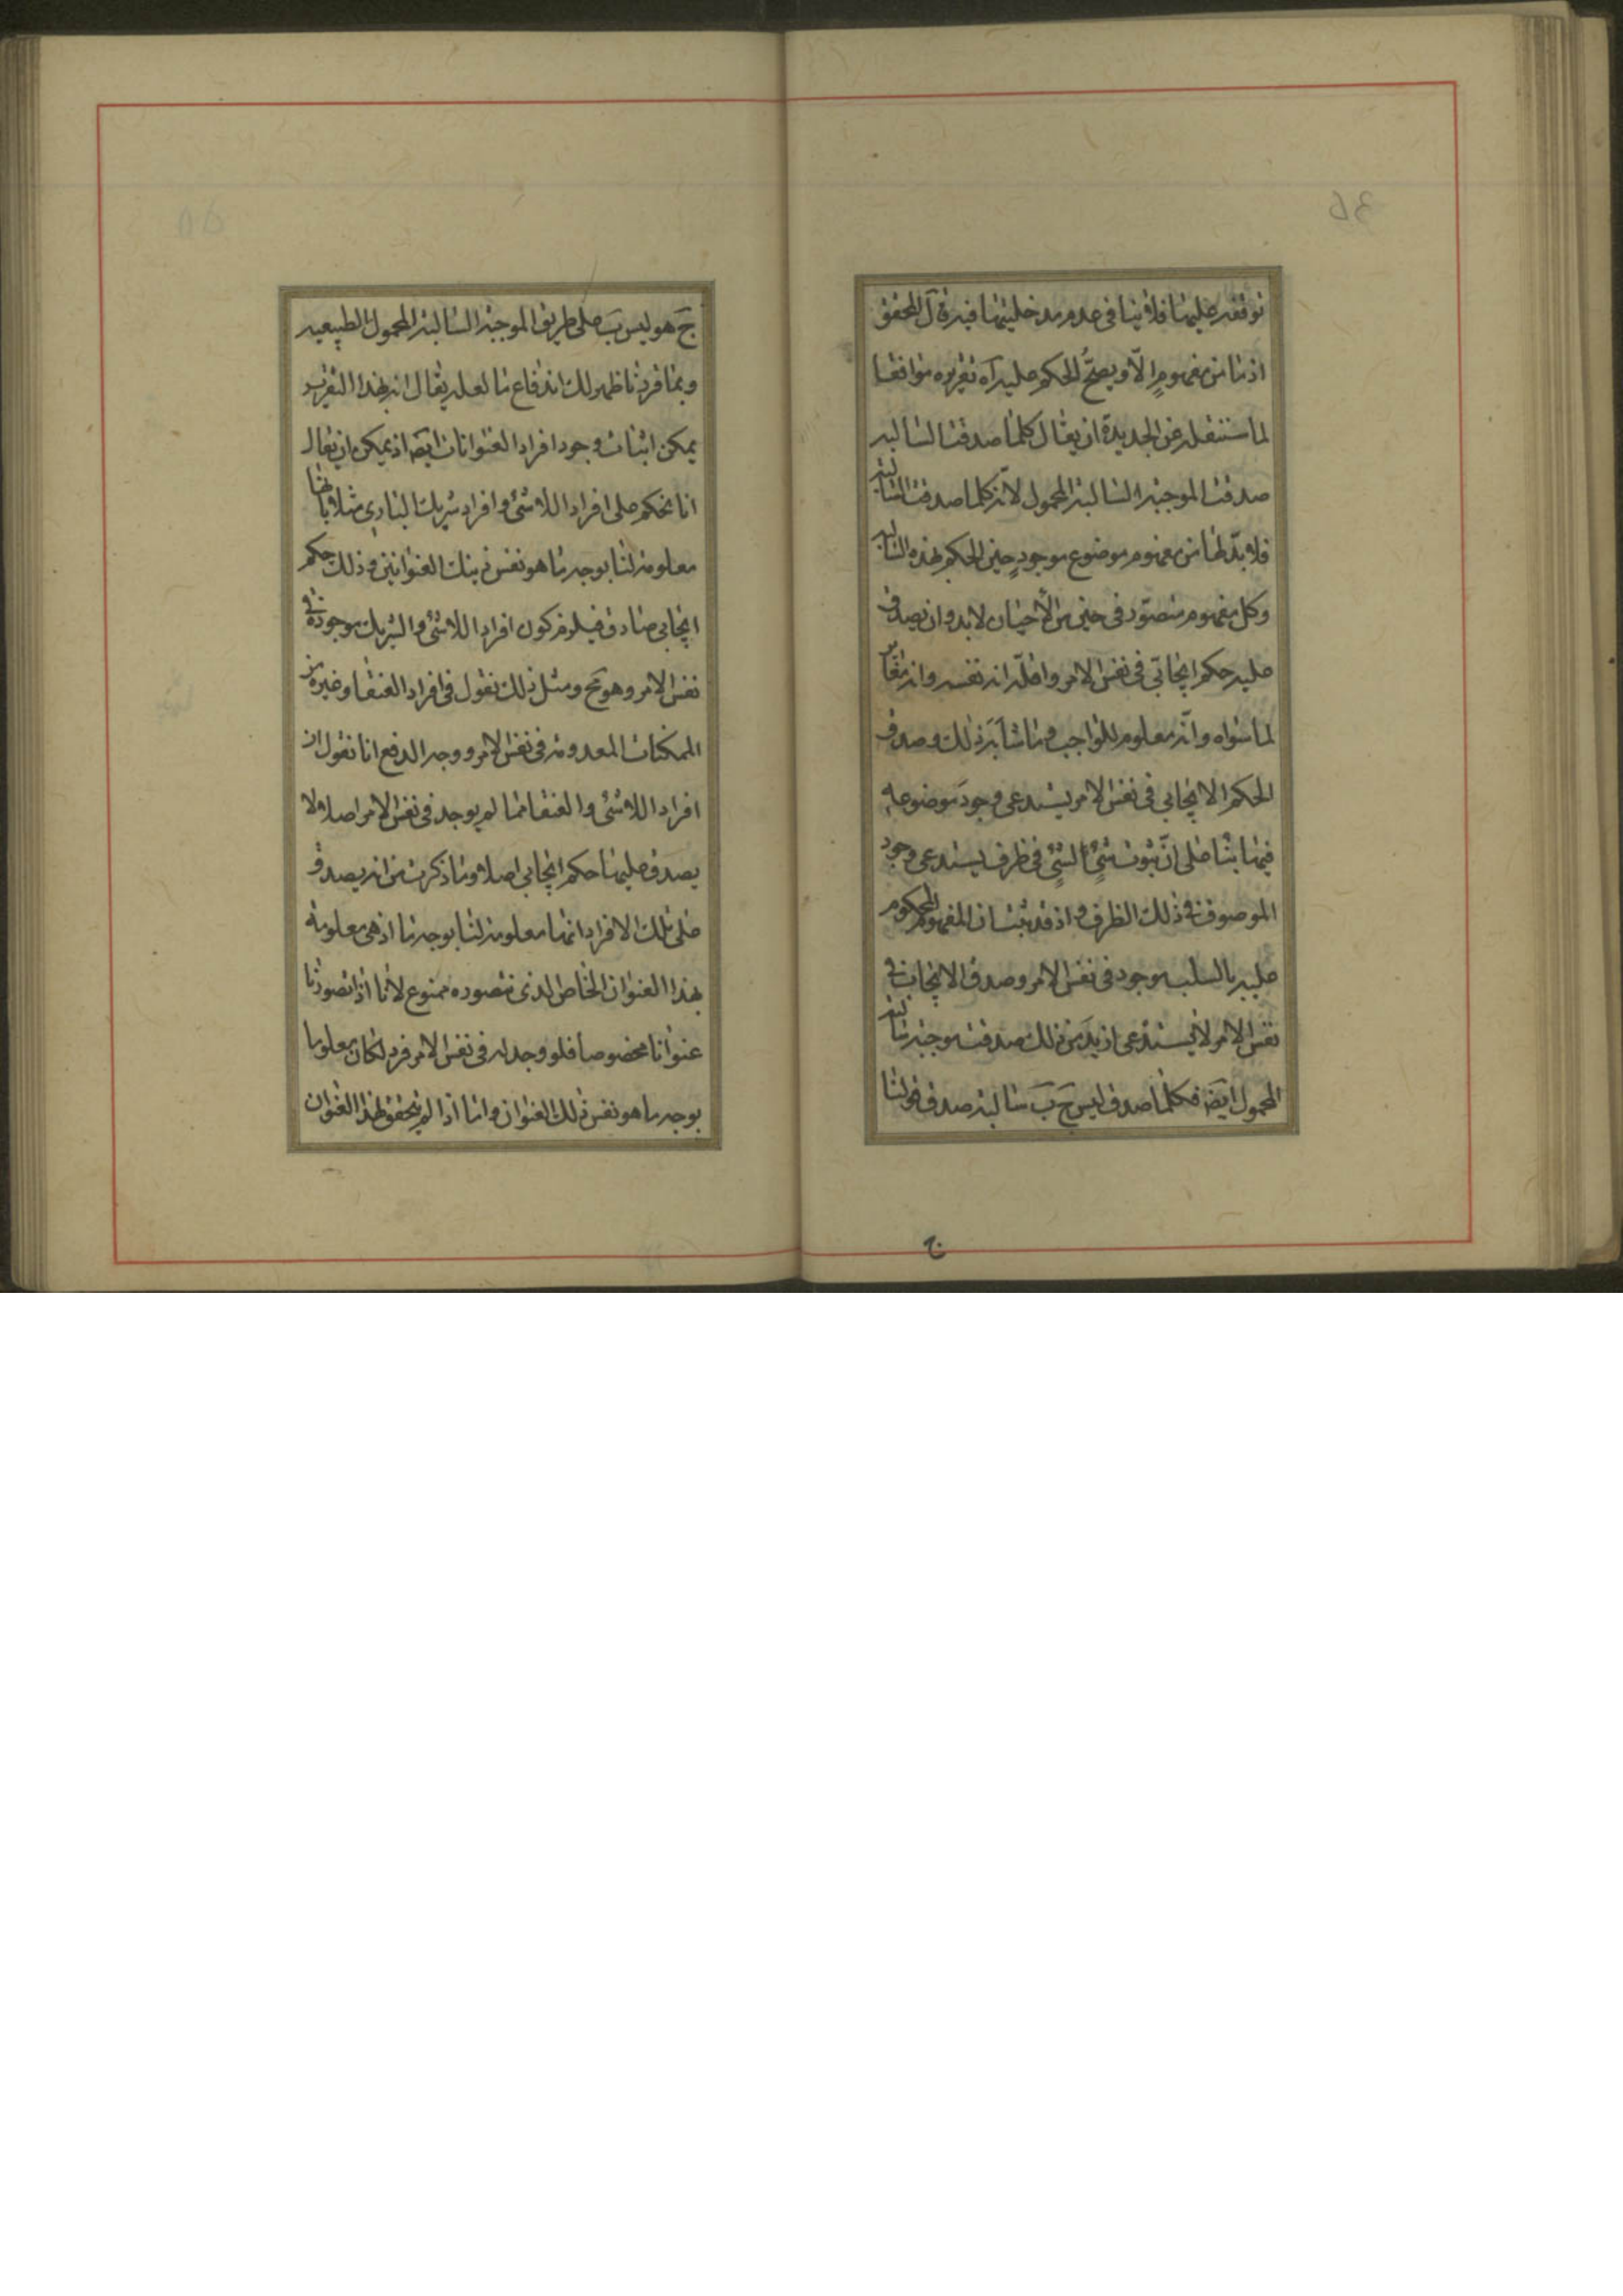 توقفه عليها فلا ينافى عدم مدخليتها فيه قال المحقق
اذ ما من مفهوم الّا ويصحّ الحكم عليه اه تقريره موافقا
لما سننقله عن الجديدة ان يقال كلما صدقت السالبه
صدقت الموجبه السالبة المحمول لانّه كلما صدقت السالبة
فلا بدّ لها من مفهوم موضوع موجودٍ حين الحكم بهذه السالبه
وكل مفهوم متصوّر فى حين من الأحيان لا بد وان يصدق
عليه حكم ايجابّى فى نفس الامر واقلّه انه نفسه وانه مغاير
لما سواه وانّه معلوم للواجب وما شابه ذلك وصدق
الحكم الايجابي فى نفس الامر يستدعى وجودَ موضوعه
فيها بناء على انّ ثبوت شئٍ لشئٍ فى ظرف يستدعى وجود
الموصوف فى ذلك الظرف واذ قد ثبت ان المفهوم المحكوم
عليه بالسلب موجود فى نفس الامر وصدق الايجاب فى
نفس الامر لا يستدعى ازيد من ذلك صدقت موجبة سالبة
المحمول ايضه فكلما صدق ليس ج ب سالبة صدق قولنا
ج
ج هو ليس ب على طريق الموجبة السالبة المحمول الطبيعيه
وبما قررنا ظهر لك اندفاع ما لعله يقال انه بهذا التقرير
يمكن اثبات وجود افراد العنوانات ايضه اذ يمكن ان يقال
انا نحكم على افراد اللاشئ وافراد شريك البارى مثلا بانها
معلومة لنا بوجه ما هو نفس ذينك العنوانين وذلك حكم
ايجابى صادق فيلزم كون افراد اللاشئ والشريك موجودة فى
نفس الامر وهو مح ومثل ذلك نقول فى افراد العنقا وغيره من
الممكنات المعدومة فى نفس الامر ووجه الدفع انا نقول ان
افراد اللاشئ والعنقا مما لم يوجد فى نفس الامر اصلا ولا
يصدق عليها حكم ايجابى اصلا وما ذكرت من انه يصدق
على تلك الافراد انها معلومة لنا بوجه ما اذ هى معلومة
بهذا العنوان الخاص الذى نتصوره ممنوع لانا اذا تصورنا
عنوانا مخصوصا فلو وجد له فى نفس الامر فرد لكان معلوما
بوجه ما هو نفس ذلك العنوان واما اذا لم يتحقق لهذا العنوان